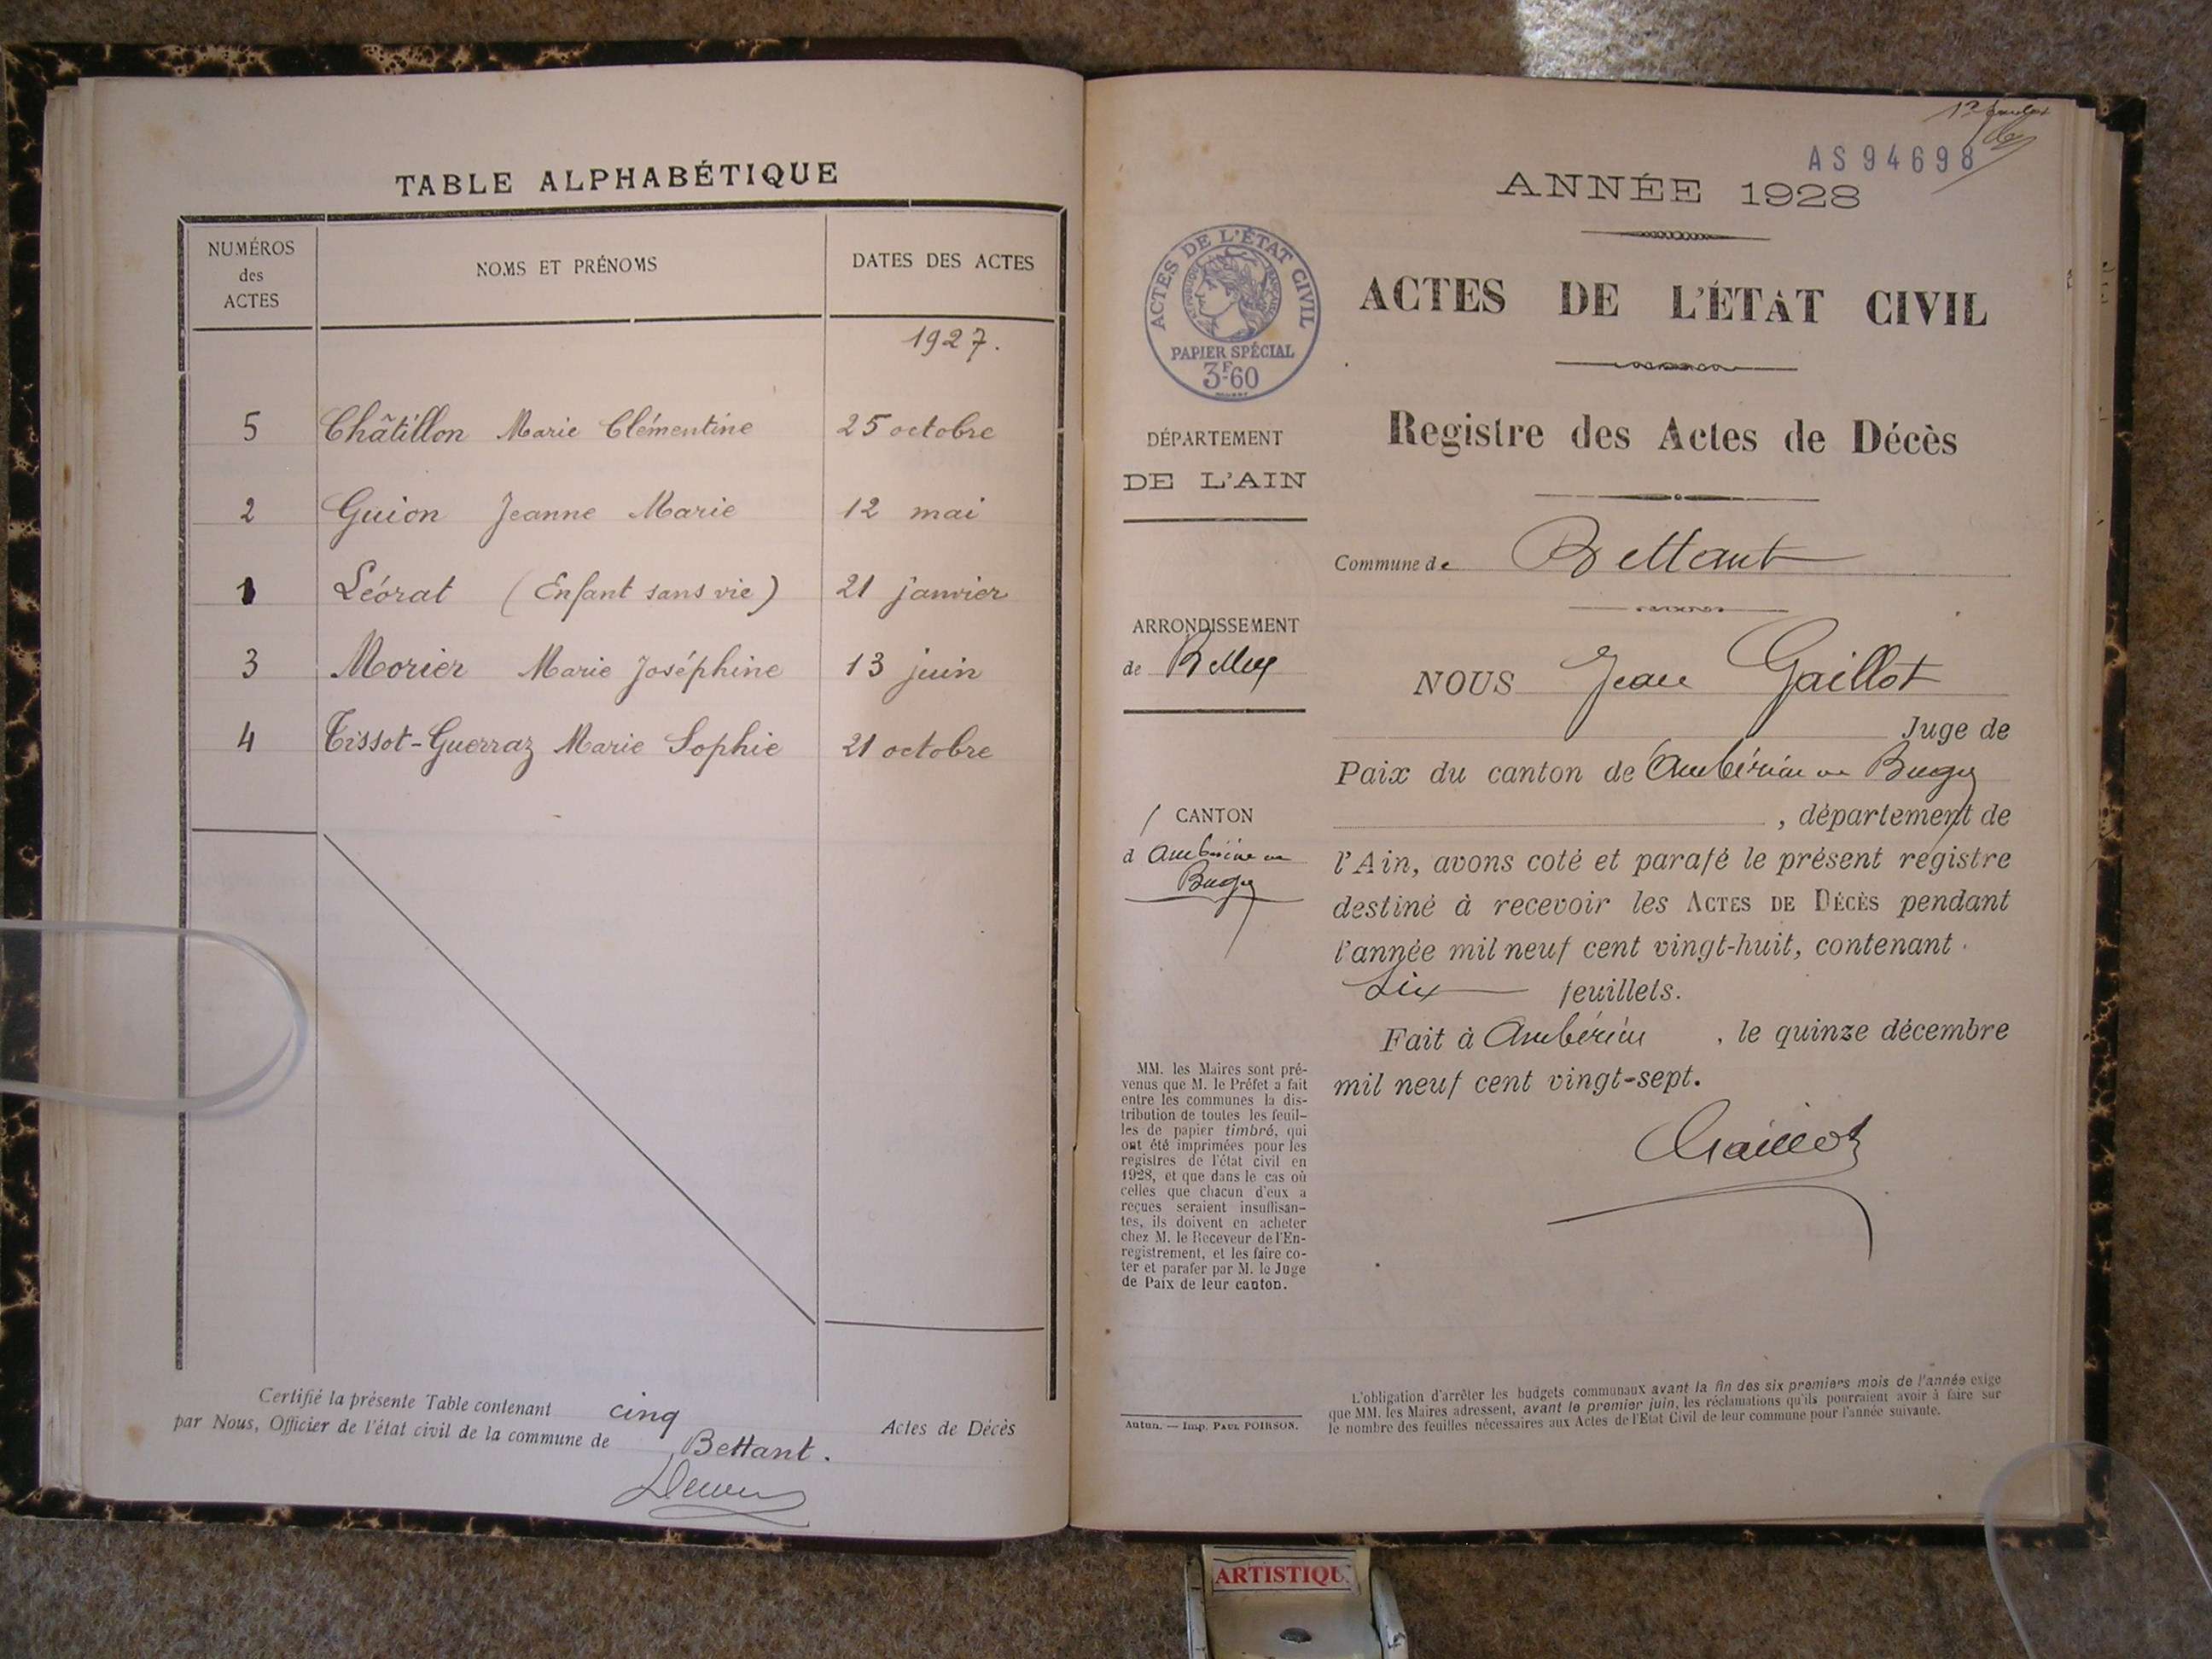 TABLE ALPHABÉTIQUE
NUMÉROS
des
ACTES
NOMS ET PRÉNOMS
DATES DES ACTES
1927.
5 Châtillon Marie Clémentine 25 octobre
2 Guion Jeanne Marie 12 mai
1 Léorat (Enfant sans vie) 21 janvier
3 Morier Marie Joséphine 13 juin
4 Tissot-Guerraz Marie Sophie 21 octobre
Certifié la présente Table contenant cinq Actes de Décès
par Nous, Officier de l'état civil de la commune de Bettant.
AS94698
ANNÉE 1928
ACTES DE L'ÉTAT CIVIL
PAPIER SPÉCIAL
3F60
ACTES DE L'ÉTAT CIVIL
Registre des Actes de Décès
DÉPARTEMENT
DE L'AIN
Commune de Bettant
ARRONDISSEMENT
de Belley
CANTON
d'Ambérieu en
Bugey
NOUS Jean Gaillot
Juge de
Paix du canton de Ambérieu en Bugey
, département de
l'Ain, avons coté et parafé le présent registre
destiné à recevoir les ACTES DE DÉCÈS pendant
l'année mil neuf cent vingt-huit, contenant
six feuillets.
Fait à Ambérieu, le quinze décembre
mil neuf cent vingt-sept.
Gaillot
MM. les Maires sont pré-
venus que M. le Préfet a fait
entre les communes la dis-
tribution de toutes les feuil-
les de papier timbré, qui
ont été imprimées pour les
registres de l'état civil en
1928, et que dans le cas où
celles que chacun d'eux a
reçues seraient insuffisan-
tes, ils doivent en acheter
chez M. le Receveur de l'En-
registrement, et les faire co-
ter et parafer par M. le Juge
de Paix de leur canton.
Autun. — Imp. PAUL POIRSON.
L'obligation d'arrêter les budgets communaux avant la fin des six premiers mois de l'année exige
que MM. les Maires adressent, avant le premier juin, les réclamations qu'ils pourraient avoir à faire sur
le nombre des feuilles nécessaires aux Actes de l'Etat Civil de leur commune pour l'année suivante.
ARTISTIQU